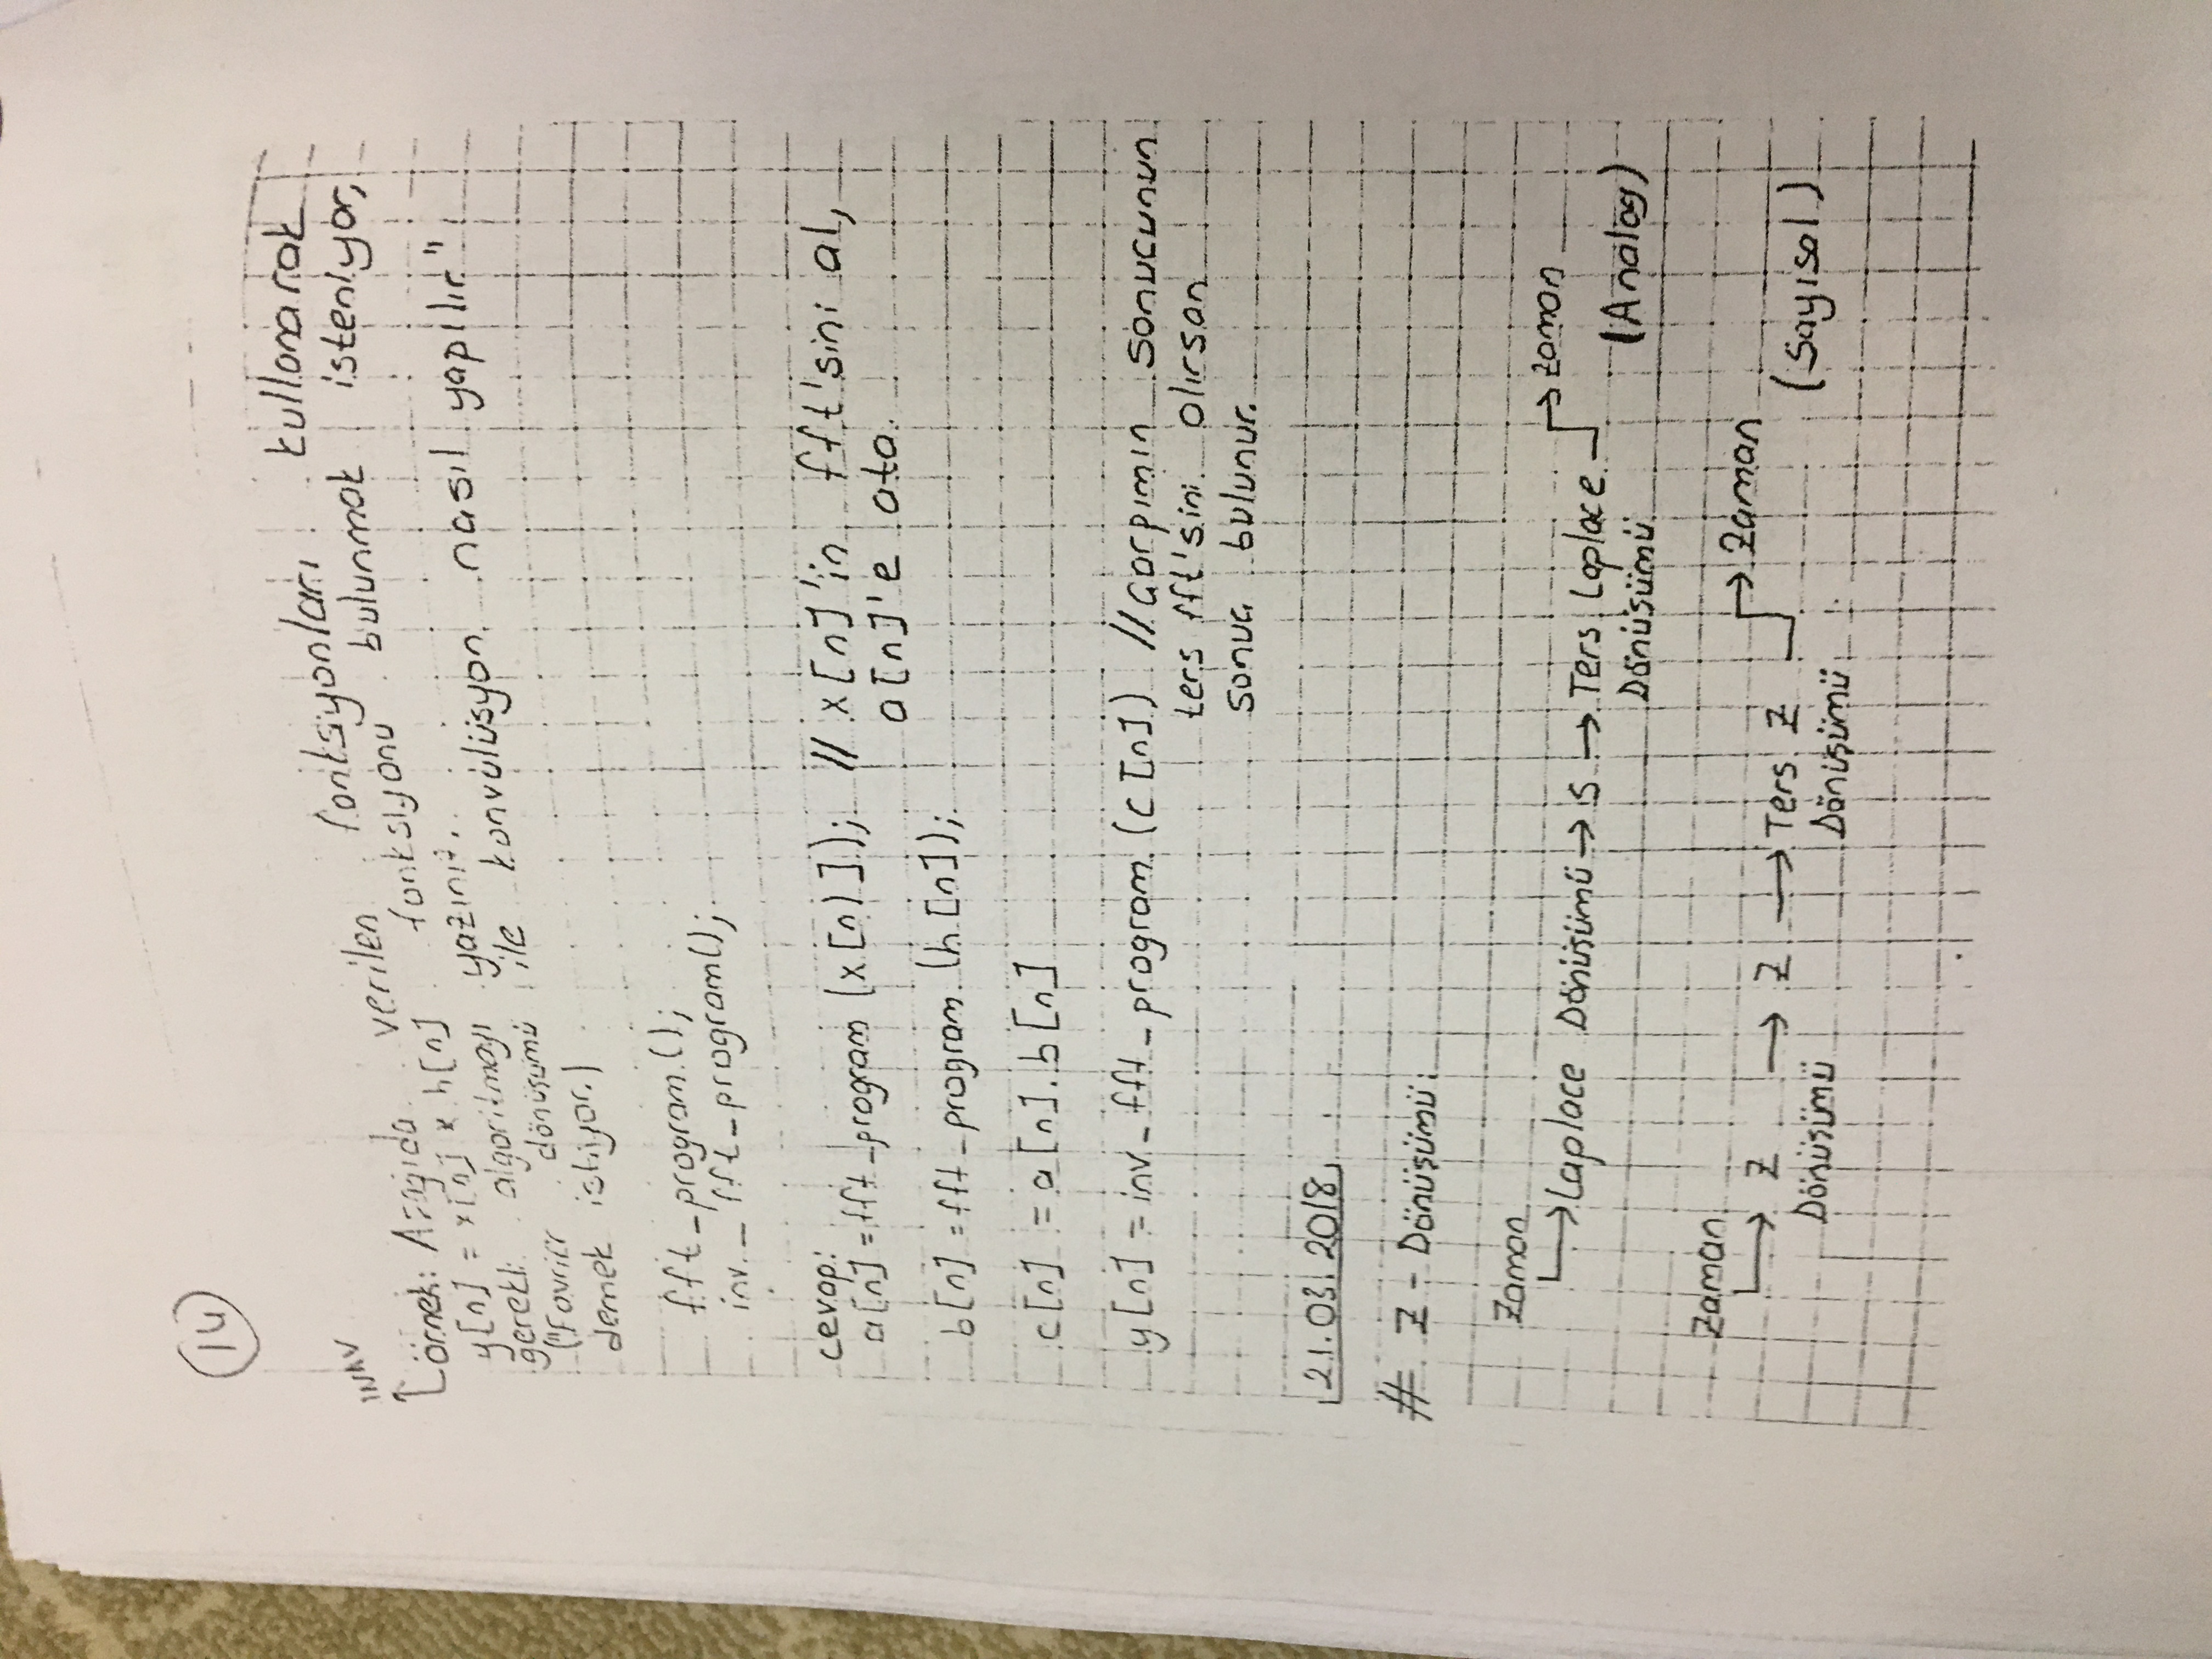 14
örnek: Aşağıda verilen fonksiyonları kullanarak
y[n] = x[n] * h[n] fonksiyonu bulunmak isteniyor,
gerekli algoritmayı yazınız.
("Fourier dönüşümü ile konvülüsyon nasıl yapılır"
demek istiyor.)
fft_program();
inv_fft_program();
cevap:
a[n] = fft_program (x[n)]); // x[n]'in fft'sini al,
a[n]'e ata.
b[n] = fft_program (h[n]);
c[n] = a[n].b[n]
y[n] = inv_fft_program (c[n]) // Çarpımın sonucunun
ters fft'sini alırsan
sonuç bulunur.
21.03.2018
# Z-Dönüşümü:
Zaman
→ Laplace Dönüşümü → S → Ters Laplace → Zaman
Dönüşümü (Analog)
Zaman
→ Z → Z → Ters Z → Zaman
Dönüşümü Dönüşümü (Sayısal)